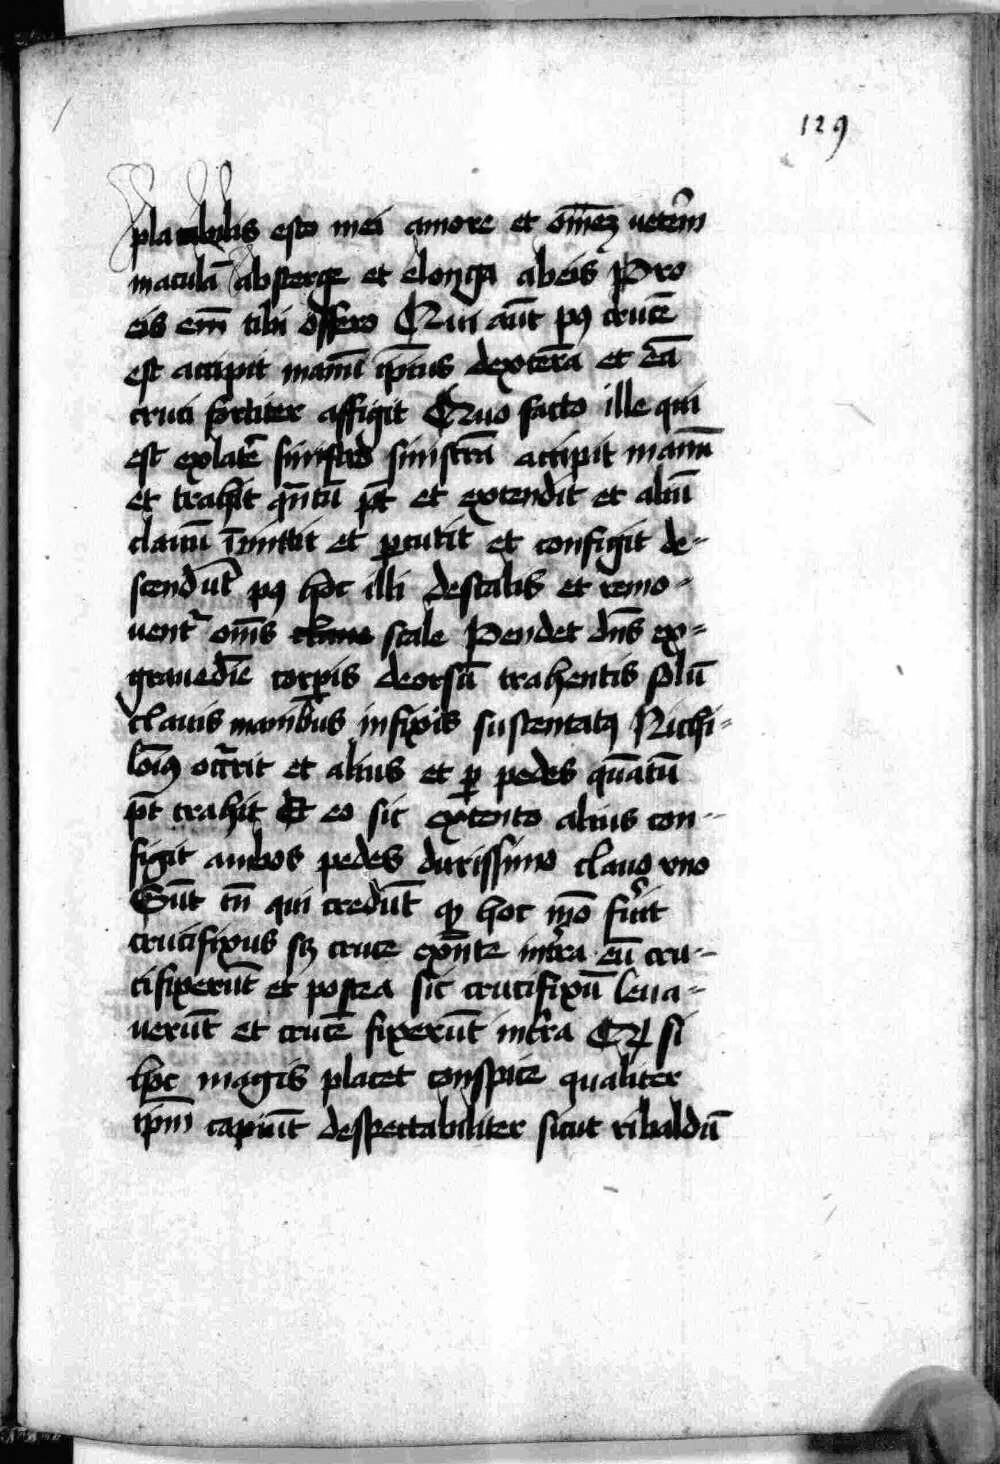 129
placabilis esto mei amore et om̅eꝫ veter̅m
maculā absterge et elonga ab eis Pro
eis em̅ tibi offero Qui aūt pꝰ crucē
est accipit manū ip̅ius dexterā et eā
cruci fortiter affigit Quo facto ille qui
est ex latē sinistrͦ sinistrā accipit manū
et trahit qn̅tū pt̅ et extendit et aliū
clauū īmittit et ꝑcutit et configit de-
scendūt pꝰ hoc illi de scalis et remo-
uent᷑ om̅s scale Pendet dn̅s ex-
grauedīe corꝑis deorsū trahentis solū
clauis manibꝰ infixis sustentatꝰ Nichi-
lōiꝰ occ̄rit et alius et ꝑ pedes quātū
pt̅ trahit Et eo sic extento alius con-
figit ambos pedes durissimo clauo vno
Sūt tn̅ qui credūt qͥ hoc mō fu̅it
crucifixus sꝫ cruce exn̅te in tr̅a eū cru-
cifixerūt et postea sic crucifixū leua-
uerūt et crucē fixerūt in tr̅a Qꝫ si
hoc magis placet conspice qualiter
ip̅m capiūt despectabiliter sicut ribaldū